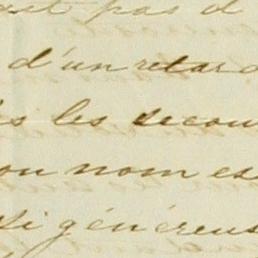 pas d
d'un retard
les secou
nom es
généreus